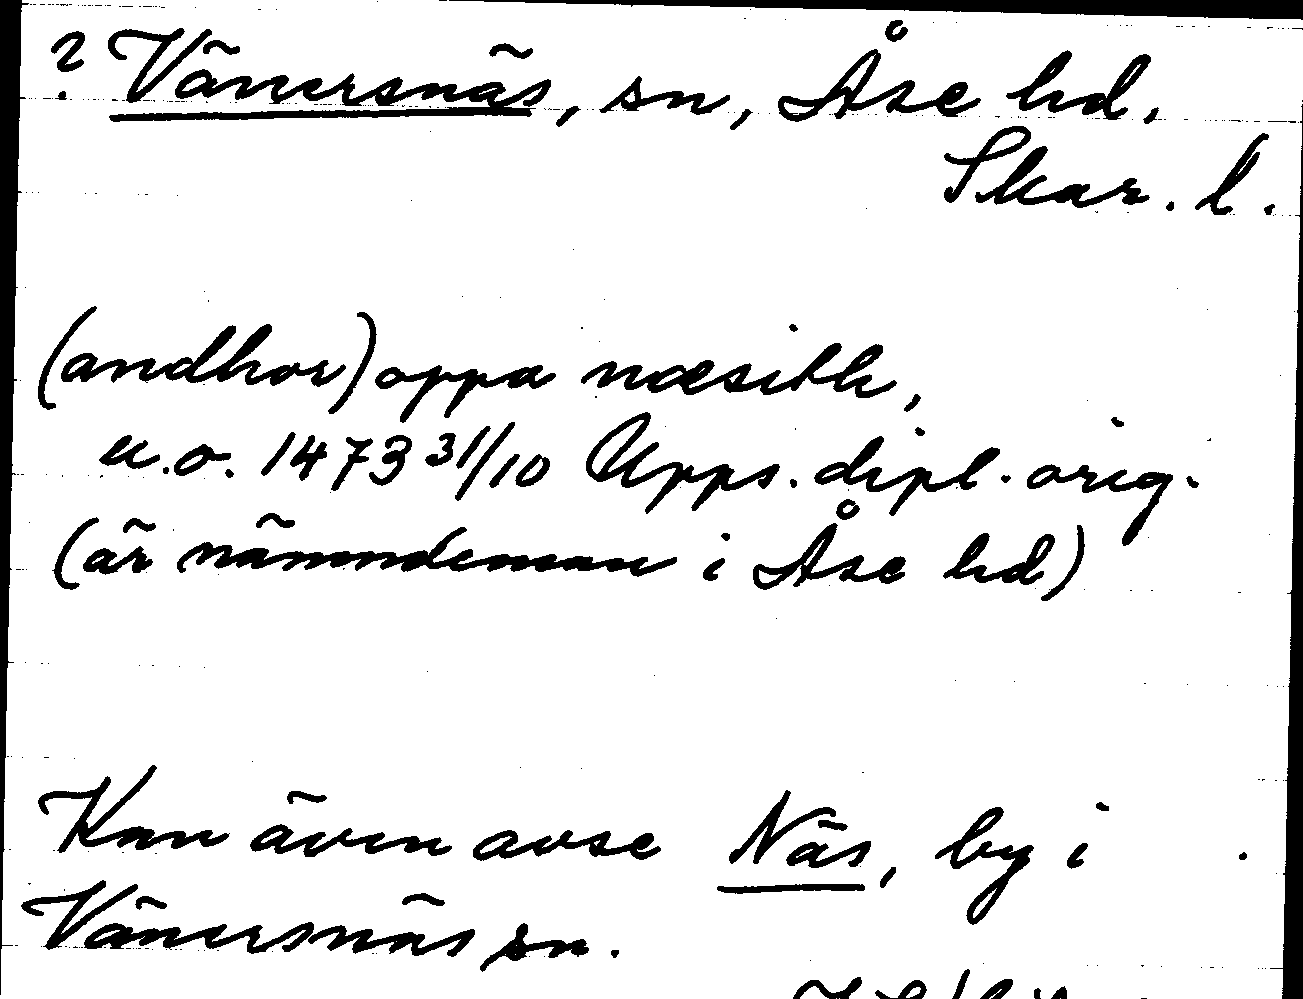 ? Vänersnäs, sn, Åse hd,
Skar. l.
(andhor) oppa næsith,
u.o. 1473 31/10 Upps. dipl. orig.
(är nämndeman i Åse hd)
Kan även avse Näs, by i
Vänersnäs sn.